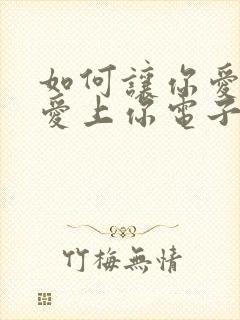 如何讓你愛
愛上你電子
竹梅無情